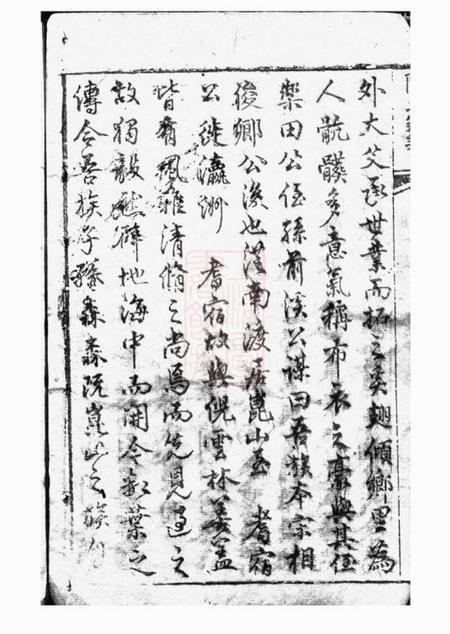 外大父承世業而拓之美翅傾鄉里為
人骯髒多意氣稱布衣之豪與其侄
樂田公侄孫前溪公謀曰吾族本宗相
後鄉公後也從南渡居崑山至 耆宿
公徙瀛洲 耆宿故與倪雲林姜蓋
皆有飄雅清脩之尚焉而先見遠之
故獨毅然辟地海中而開今云葉之
傳今吾族子孫森森既崑山之族